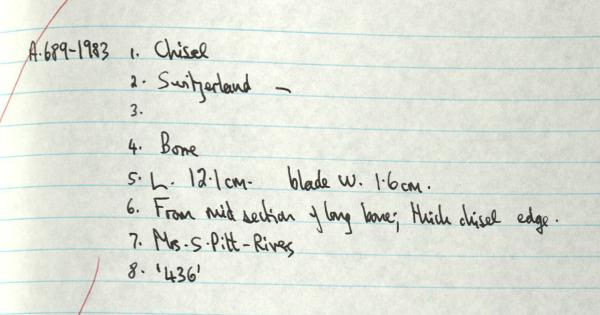 A.689-1983 1. Chisel
2. Switzerland –
3.
4. Bone
5. L. 12.1cm. blade w. 1.6cm.
6. From mid section of long bone; thick chisel edge.
7. Mrs. S. Pitt-Rivers
8. '436'